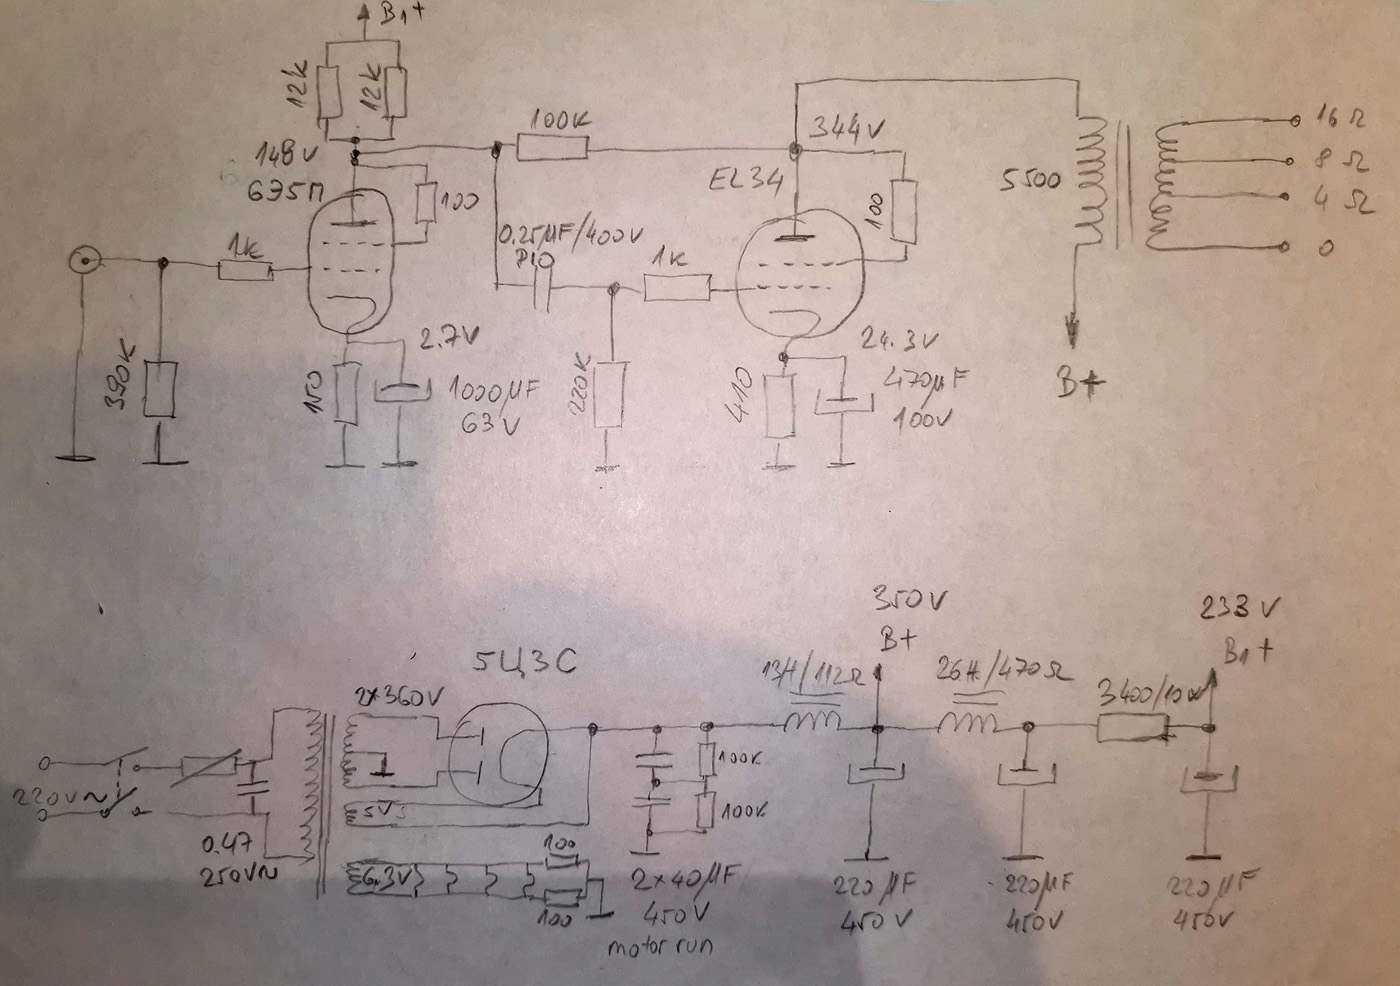 B1+
12k
12k
148v
6Э5П
100
1k
390k
2.7v
150
1000µF
63v
100k
0.25µF/400v
PIO
1k
220k
344v
EL34
100
24.3v
410
470µF
100v
5500
B+
16 Ω
8 Ω
4 Ω
0
220v~
0.47
250v~
2×360v
5Ц3С
5v
6.3v
100
100
100k
100k
2×40µF
450v
motor run
13H/112Ω
350v
B+
220µF
450v
26H/470Ω
220µF
450v
3400/10w
233v
B1+
220µF
450v